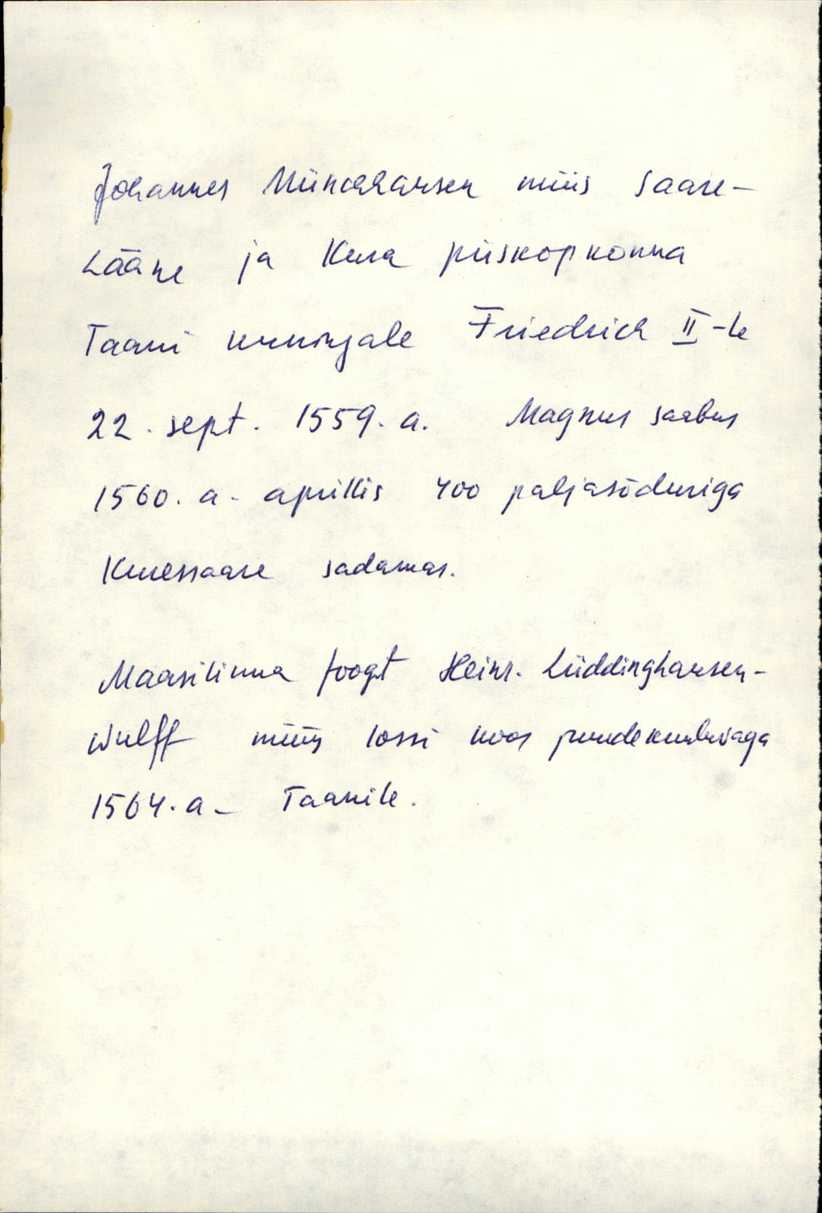 Johannes Münchhausen müüs Saare-
Lääne ja Kura piiskopkonna
Taani kuningale Friedrich II-le
22. sept. 1559. a. Magnus saabus
1560. a. aprillis 400 paljasõduriga
Kuressaare sadamas.
Maasilinna foogt Heinr. Lüddinghausen-
Wulff müüs lossi koos juurdekuuluvaga
1564. a. Taanile.